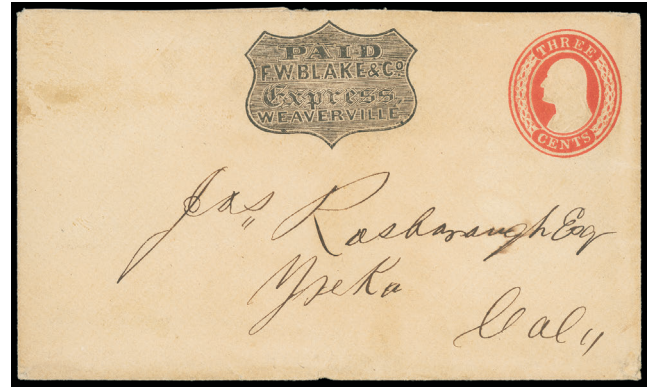 PAID
F.W. BLAKE & Co
Express,
WEAVERVILLE
THREE
CENTS
Jas, Rosborough Esq
Yreka
Cal,,